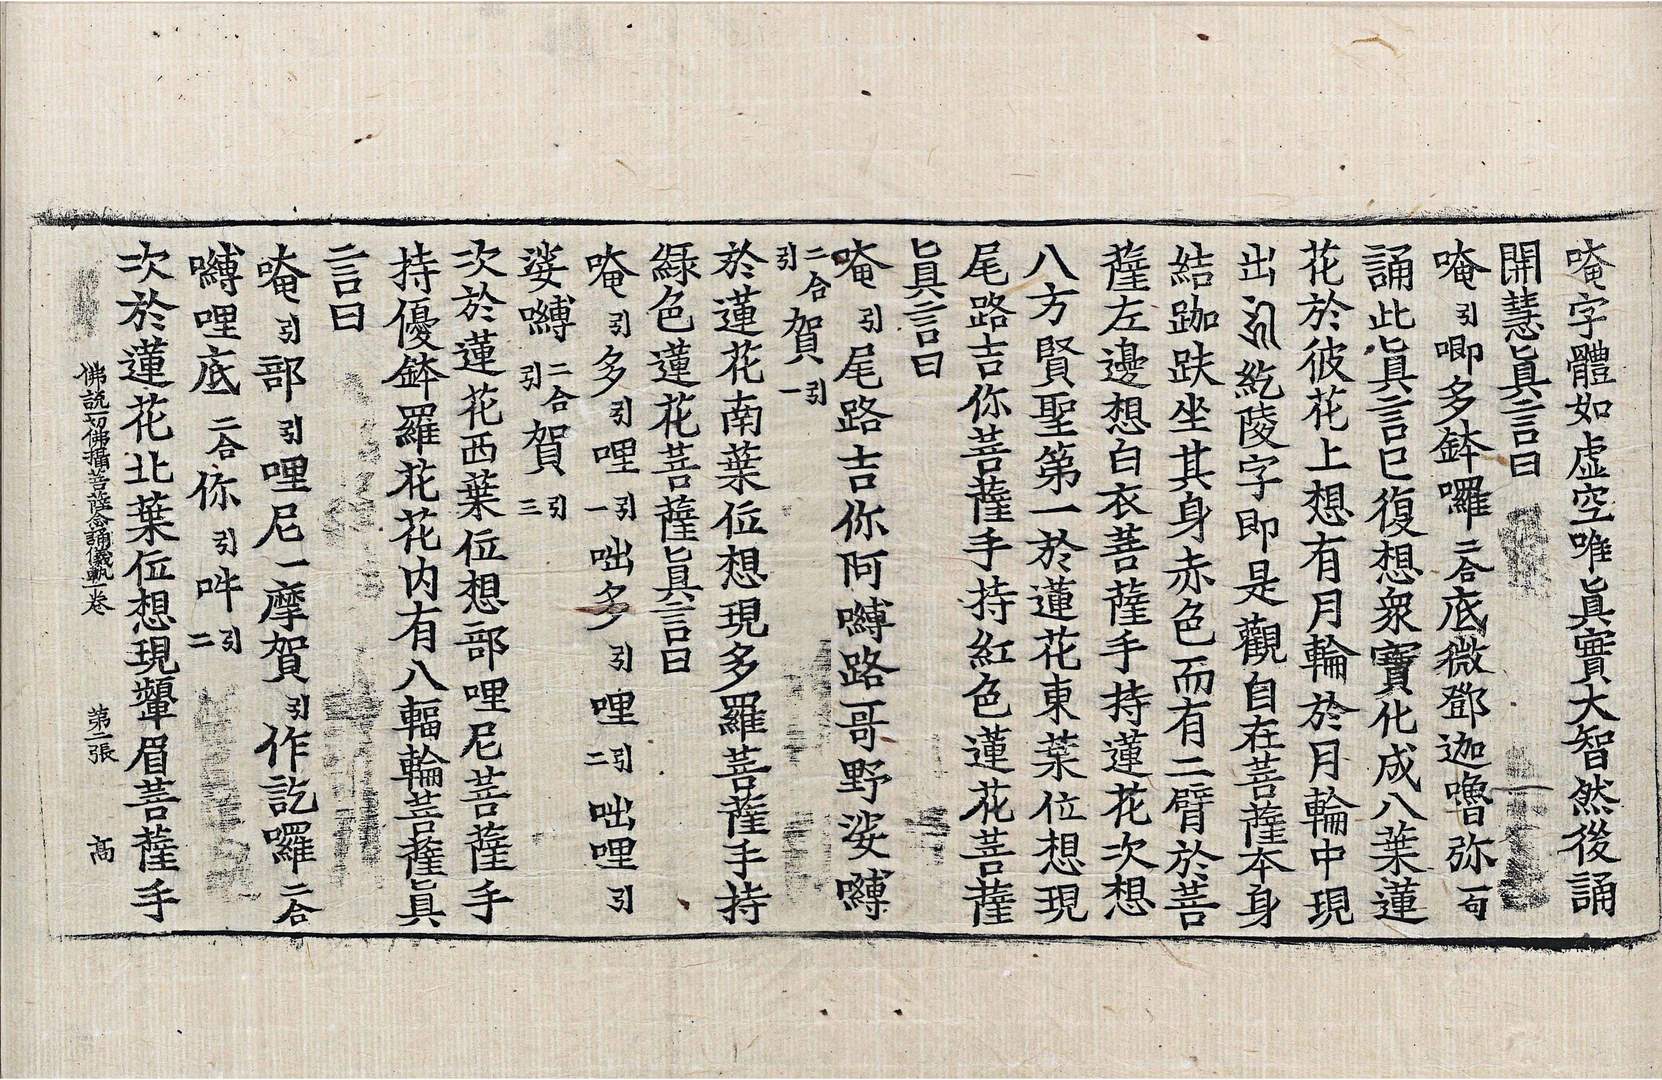 唵字體如虛空唯眞實大智然後誦
開慧眞言曰
唵引唧多鉢囉二合底微鄧迦嚕弥一句
誦此眞言已復想衆寶化成八葉蓮
花於彼花上想有月輪於月輪中現
出紇陵字即是觀自在菩薩本身
結跏趺坐其身赤色而有二臂於菩
薩左邊想白衣菩薩手持蓮花次想
八方賢聖第一於蓮花東葉位想現
尾路吉你菩薩手持紅色蓮花菩薩
眞言曰
唵引尾路吉你阿嚩路哥野娑嚩
二合引賀引一
於蓮花南葉位想現多羅菩薩手持
綠色蓮花菩薩眞言曰
唵引多引哩引一咄多引哩引二咄哩引
娑嚩二合引賀引三
次於蓮花西葉位想部哩尼菩薩手
持優鉢羅花花内有八輻輪菩薩眞
言曰
唵引部引哩尼一摩賀引作訖囉二合
嚩哩底二合你引吽引二
次於蓮花北葉位想現顰眉菩薩手
佛說一切佛攝菩薩念誦儀軌一卷 第二張 高